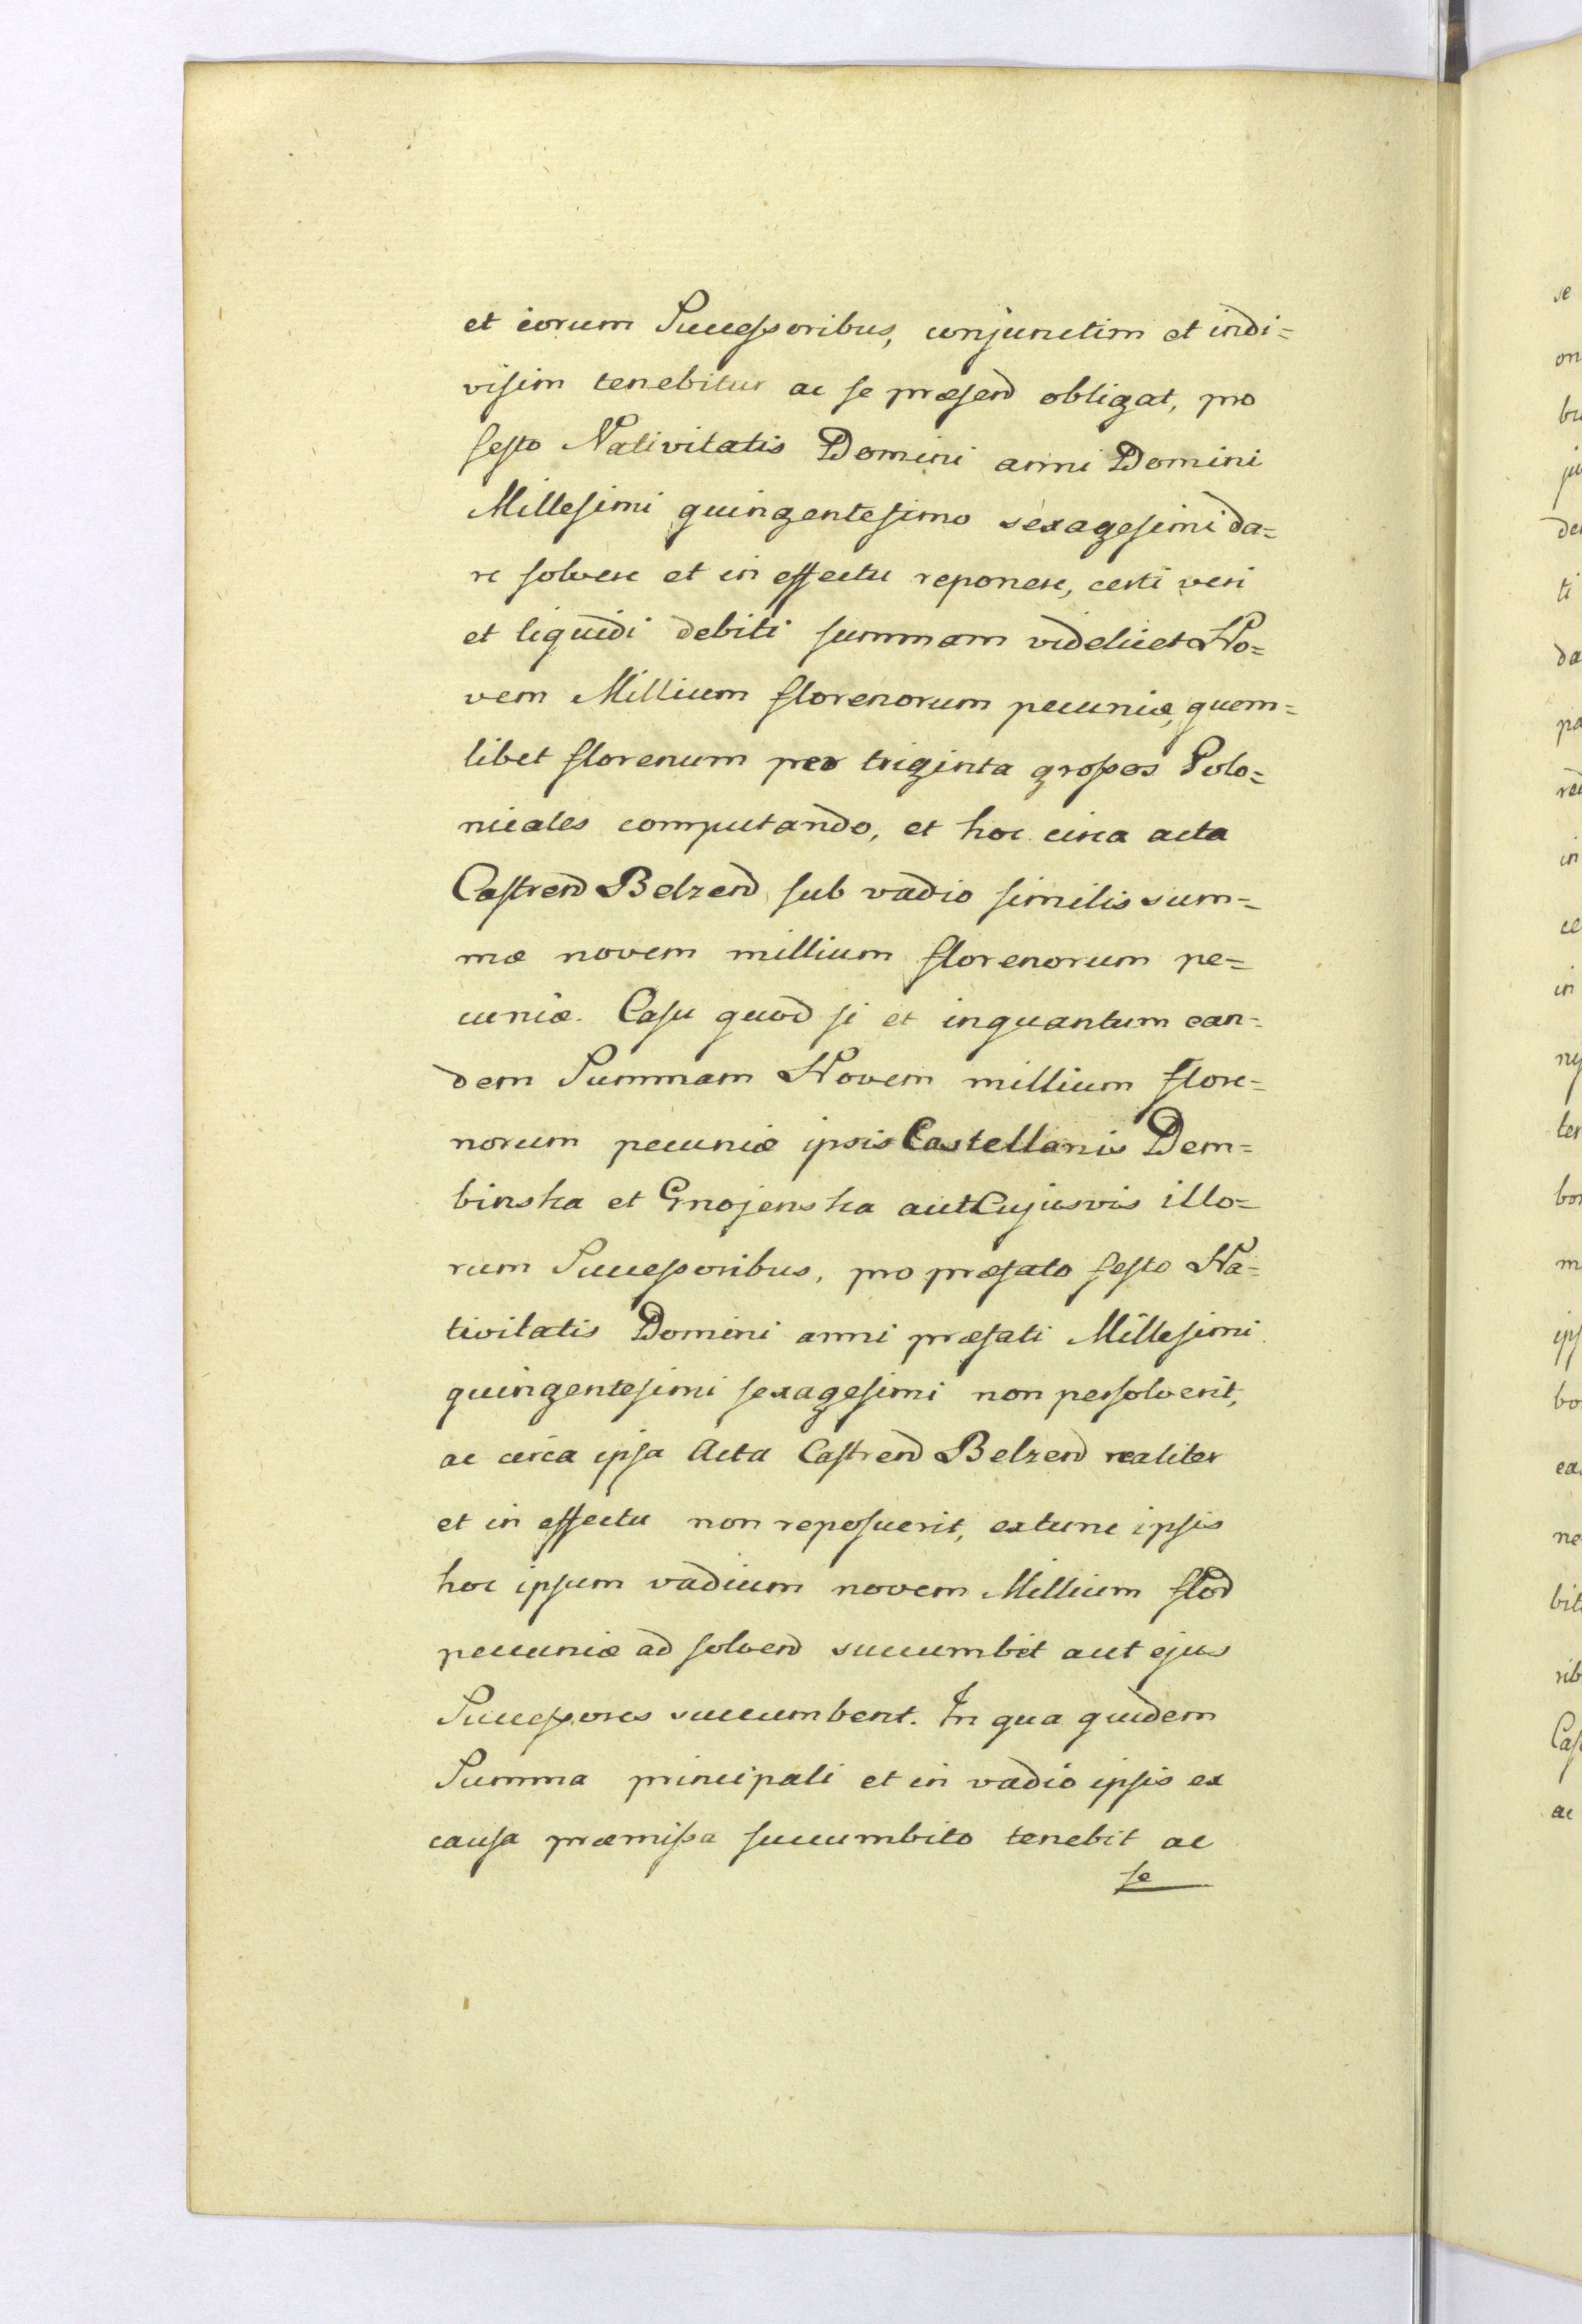 et eorum Successoribus, conjunctim et indi=
visim tenebitur ac se præsend obligat, pro
festo Nativitatis Domini anni Domini
Millesimi quingentesimo sexagesimi da=
re solvere et in effectu reponere, certi veri
et liquidi debiti summam videlicet No=
vem Millium florenorum pecuniæ, quem=
libet florenum per triginta grossos Polo=
nicales computando, et hoc circa acta
Castrend Belzend sub vadio similis sum=
mæ novem millium florenorum pe=
cuniæ. Casu quod si et inquantum ean=
dem Summam Novem millium flore=
norum pecuniæ ipsis Castellanis Dem=
binska et Gnojenska aut Cujusvis illo=
rum Successoribus, pro præfato festo Na=
tivitatis Domini anni præfati Millesimi
quingentesimi sexagesimi non persolverit,
ac circa ipsa Acta Castrend Belzend realiter
et in effectu non reposuerit, extunc ipsis
hoc ipsum vadium novem Millium flod
pecuniæ ad solvend succumbet aut ejus
Successores succumbent. In qua quidem
Summa principali et in vadio ipsis ex
causa præmissa succumbito tenebit ac
se